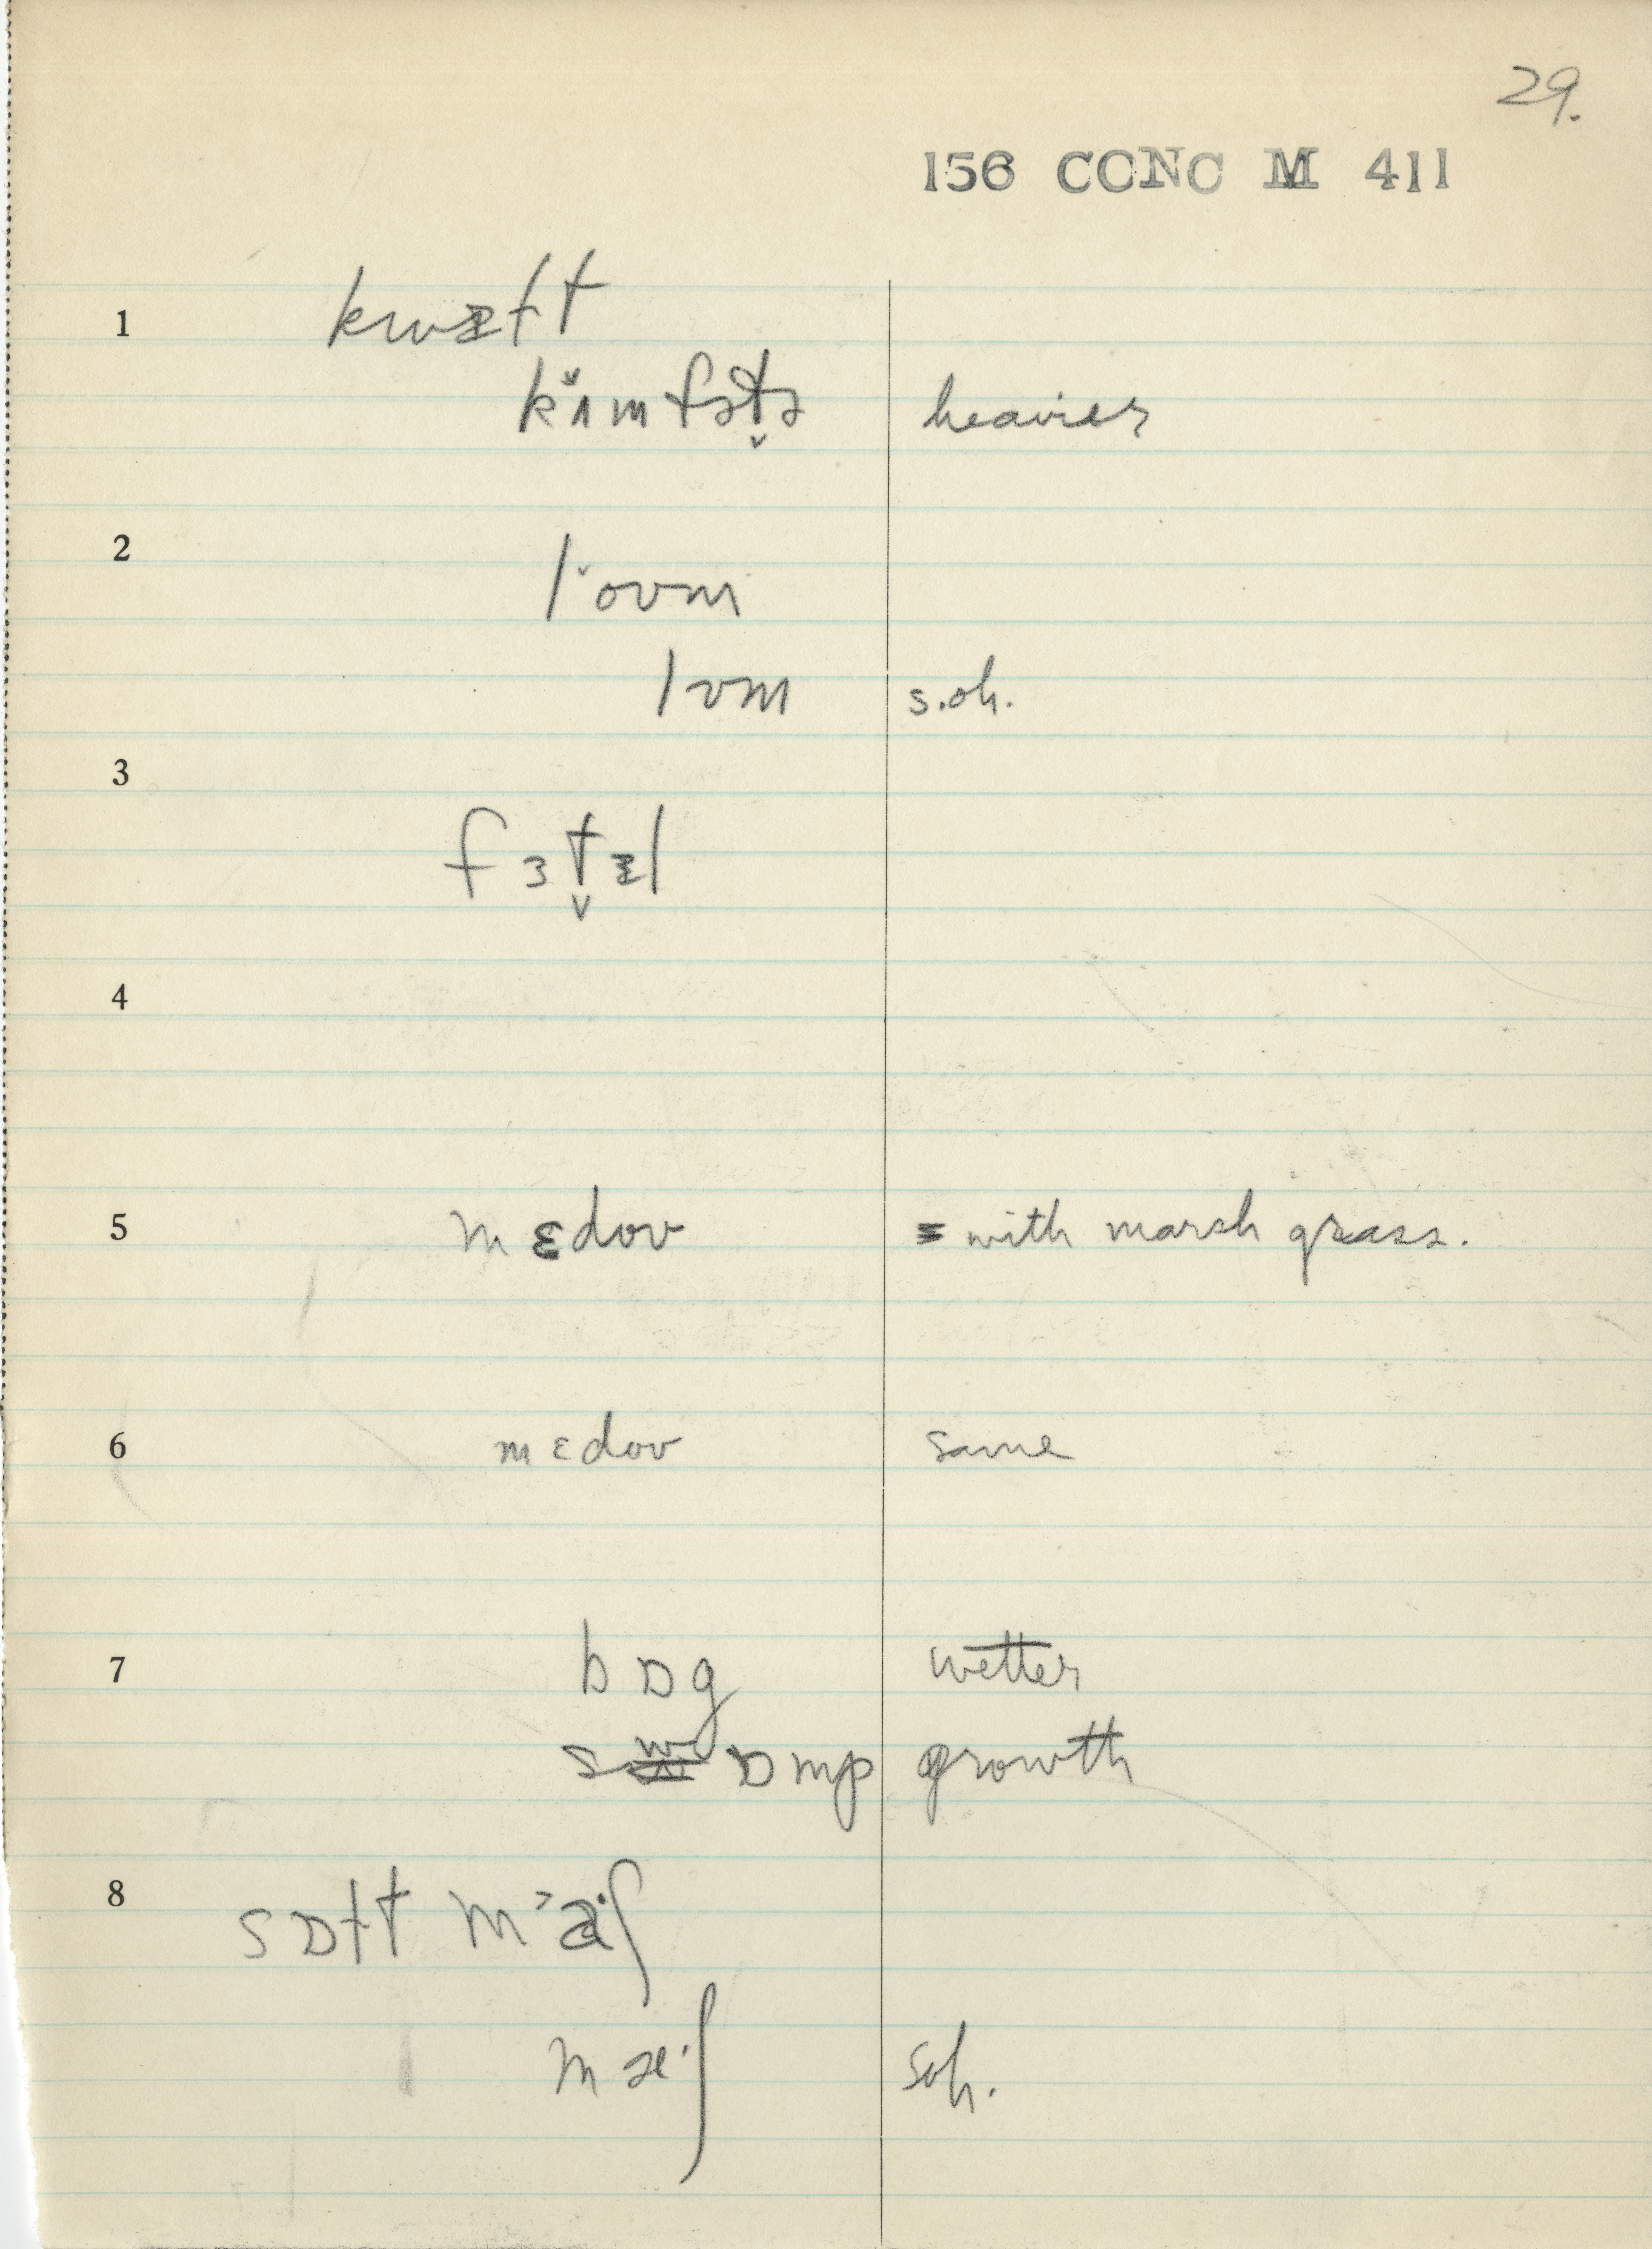 29.
156 CONC M 411
1 kwɪft
kʌ̌mfət̬ə heavier
2 lˇoʊm
lʊm s.oh.
3 fɜt̬ɪl
4
5 mɛdoʊ = with marsh grass.
6 mɛdoʊ same
7 bɒg wetter
swɒmp growth
8 sɒft m˃a·ʃ
mæ·ʃ soh.